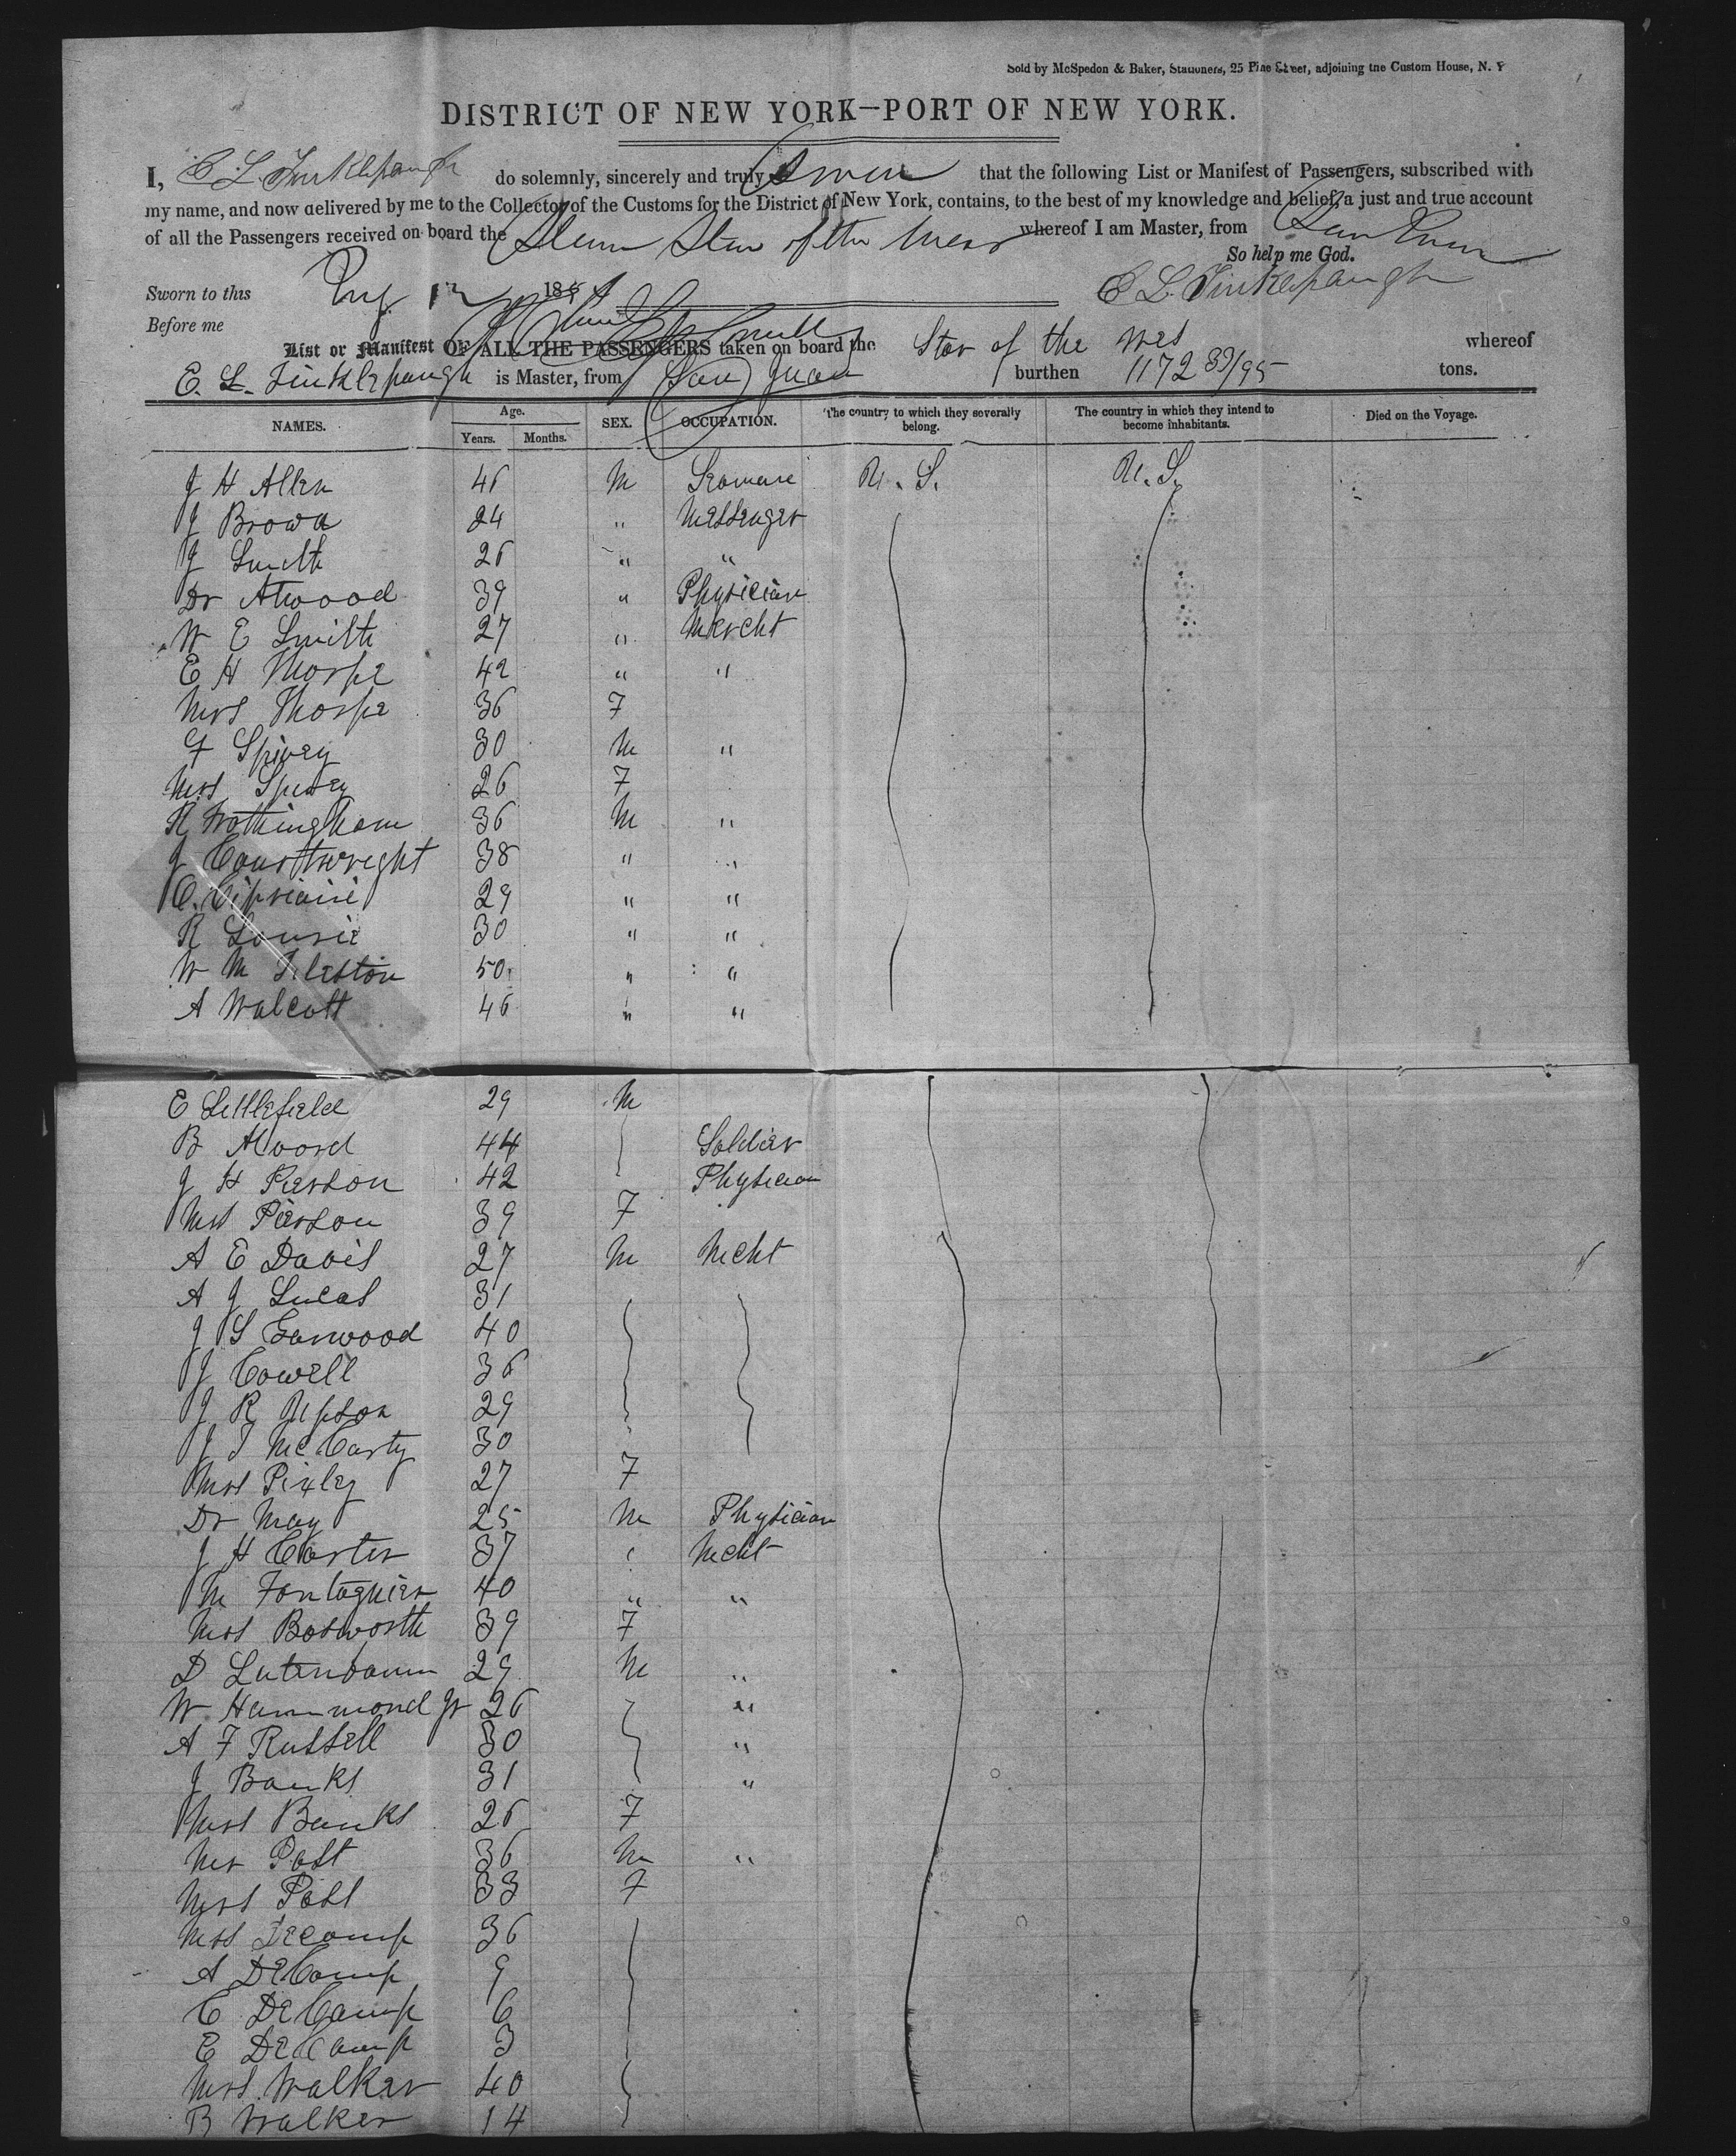 Sold by McSpedon & Baker, Stationers, 25 Pine Street, adjoining the Custom House, N. Y
DISTRICT OF NEW YORK—PORT OF NEW YORK.
I, E L Tinklepaugh do solemnly, sincerely and truly swear that the following List or Manifest of Passengers, subscribed with
my name, and now delivered by me to the Collector of the Customs for the District of New York, contains, to the best of my knowledge and belief, a just and true account
of all the Passengers received on board the Steamer Star of the West whereof I am Master, from San Juan
So help me God.
Sworn to this Aug 12 185 E L Tinklepaugh
Before me
List or Manifest OF ALL THE PASSENGERS taken on board the Star of the Wes whereof
E. L. Tinklepaugh is Master, from San Juan burthen 1172 89/95 tons.
NAMES. Age. Years. Months. SEX. OCCUPATION. The country to which they severally belong. The country in which they intend to become inhabitants. Died on the Voyage.
J H Allen 46 M Seaman U. S. U. S.
J Brown 24 " Messenger
J Smith 26 " "
Dr Atwood 39 " Physician
W E Smith 27 " Mercht
E H Thorpe 42 " "
Mrs Thorpe 36 F
F Spivey 30 M "
Mrs Spivey 26 F
R Nottingham 36 M "
J Courtwright 38 " "
C. Cipriani 29 " "
R Lourie 30 " "
W M 50 " "
A Walcott 46 " "
E Littlefield 29 M
B Alvord 44 Soldier
J H Pierson 42 Physician
Mrs Pierson 39 F
A E Davis 27 M Mcht
A J Lucas 31
J S Garwood 40
J Cowell 36
J R Upson 29
J T McCarty 30
Mrs Pixley 27 F
Dr May 25 M Physician
J H Carter 37 ' Mcht
M Fontagnier 40 " "
Mrs Bosworth 39 F
D 29 M "
W Hammond Jr 26 "
A F Russell 30 "
J Banks 31 "
Mrs Banks 26 F
Mr Post 36 M "
Mrs Post 33 F
Mrs Decamp 36
A DeCamp 9
C DeCamp 6
E DeCamp 3
Mrs Walker 40
B Walker 14